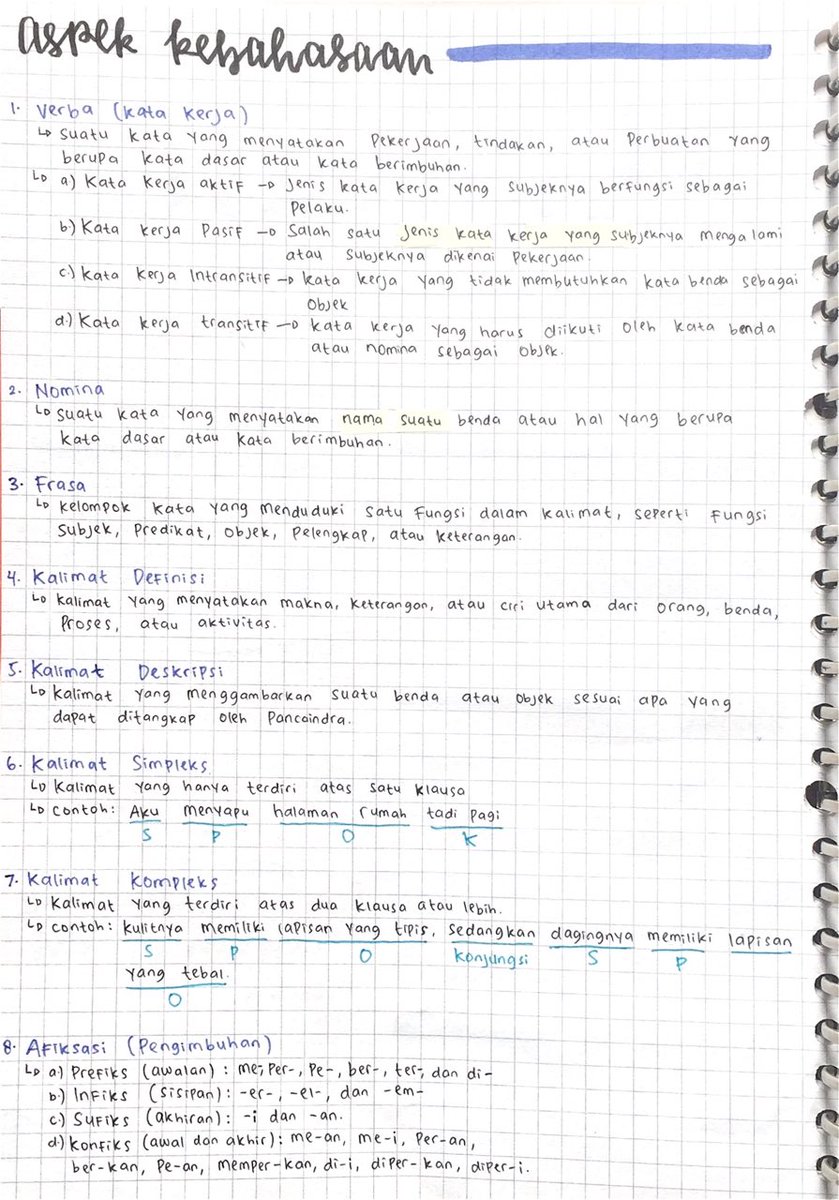 aspek kebahasaan
1. Verba (kata kerja)
↳ suatu kata yang menyatakan pekerjaan, tindakan, atau perbuatan yang
berupa kata dasar atau kata berimbuhan.
↳ a) Kata kerja aktif → Jenis kata kerja yang subjeknya berfungsi sebagai
pelaku.
b) Kata kerja pasif → Salah satu jenis kata kerja yang subjeknya mengalami
atau subjeknya dikenai pekerjaan.
c) Kata kerja Intransitif → kata kerja yang tidak membutuhkan kata benda sebagai
objek
d.) Kata kerja transitif → kata kerja yang harus diikuti oleh kata benda
atau nomina sebagai objek.
2. Nomina
↳ suatu kata yang menyatakan nama suatu benda atau hal yang berupa
kata dasar atau kata berimbuhan.
3. Frasa
↳ kelompok kata yang menduduki satu fungsi dalam kalimat, seperti fungsi
subjek, predikat, objek, pelengkap, atau keterangan.
4. Kalimat Definisi
↳ kalimat yang menyatakan makna, keterangan, atau ciri utama dari orang, benda,
proses, atau aktivitas.
5. Kalimat Deskripsi
↳ kalimat yang menggambarkan suatu benda atau objek sesuai apa yang
dapat ditangkap oleh pancaindra.
6. Kalimat Simpleks
↳ Kalimat yang hanya terdiri atas satu klausa
↳ contoh: Aku menyapu halaman rumah tadi pagi
S P O K
7. Kalimat Kompleks
↳ Kalimat yang terdiri atas dua klausa atau lebih.
↳ contoh: kulitnya memiliki lapisan yang tipis, sedangkan dagingnya memiliki lapisan
S P O konjungsi S P
yang tebal.
O
8. Afiksasi (Pengimbuhan)
↳ a) Prefiks (awalan) : me-, per-, pe-, ber-, ter-, dan di-
b.) Infiks (sisipan): -er-, -el-, dan -em-
c.) Sufiks (akhiran): -i dan -an.
d.) Konfiks (awal dan akhir): me-an, me-i, per-an,
ber-kan, pe-an, memper-kan, di-i, diper-kan, diper-i.